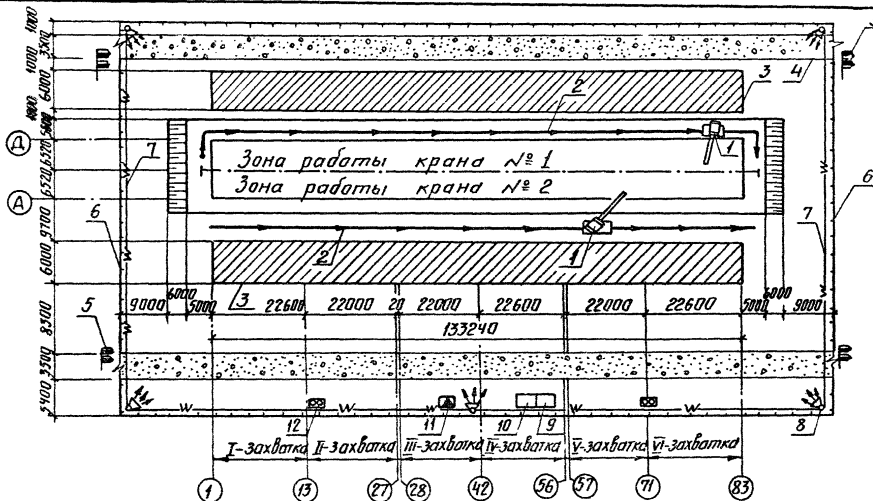 1000
3500
1000
6000
Д
А
6520
6520
9700
6000
8500
3500
5400
2
3
4
1
7
Зона работы крана №1
Зона работы крана №2
6
6
7
2
1
3
5
9000
6000
5000
22600
22000
20
22000
22600
22000
22600
5000
6000
9000
133240
12
11
10
9
8
I-захватка
II-захватка
III-захватка
IV-захватка
V-захватка
VI-захватка
1
13
27
28
42
56
57
71
83
W
W
W
W
W
W